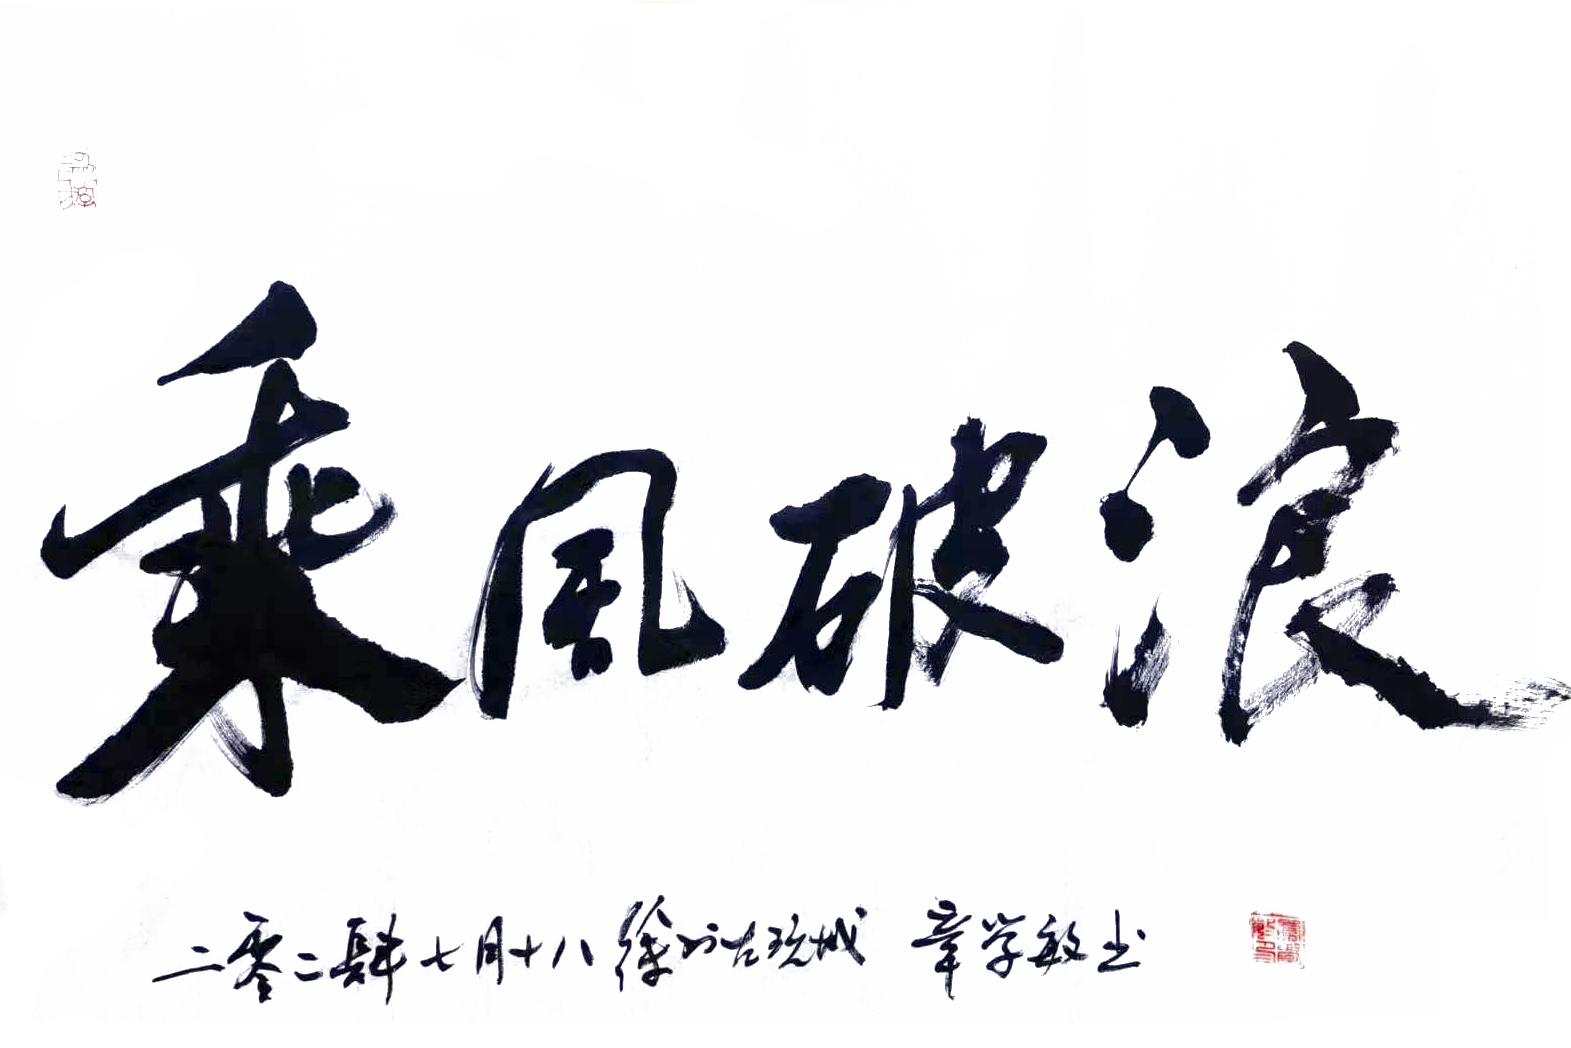 乘风破浪
二零二肆七月十八徐州古玩城 章学敏书